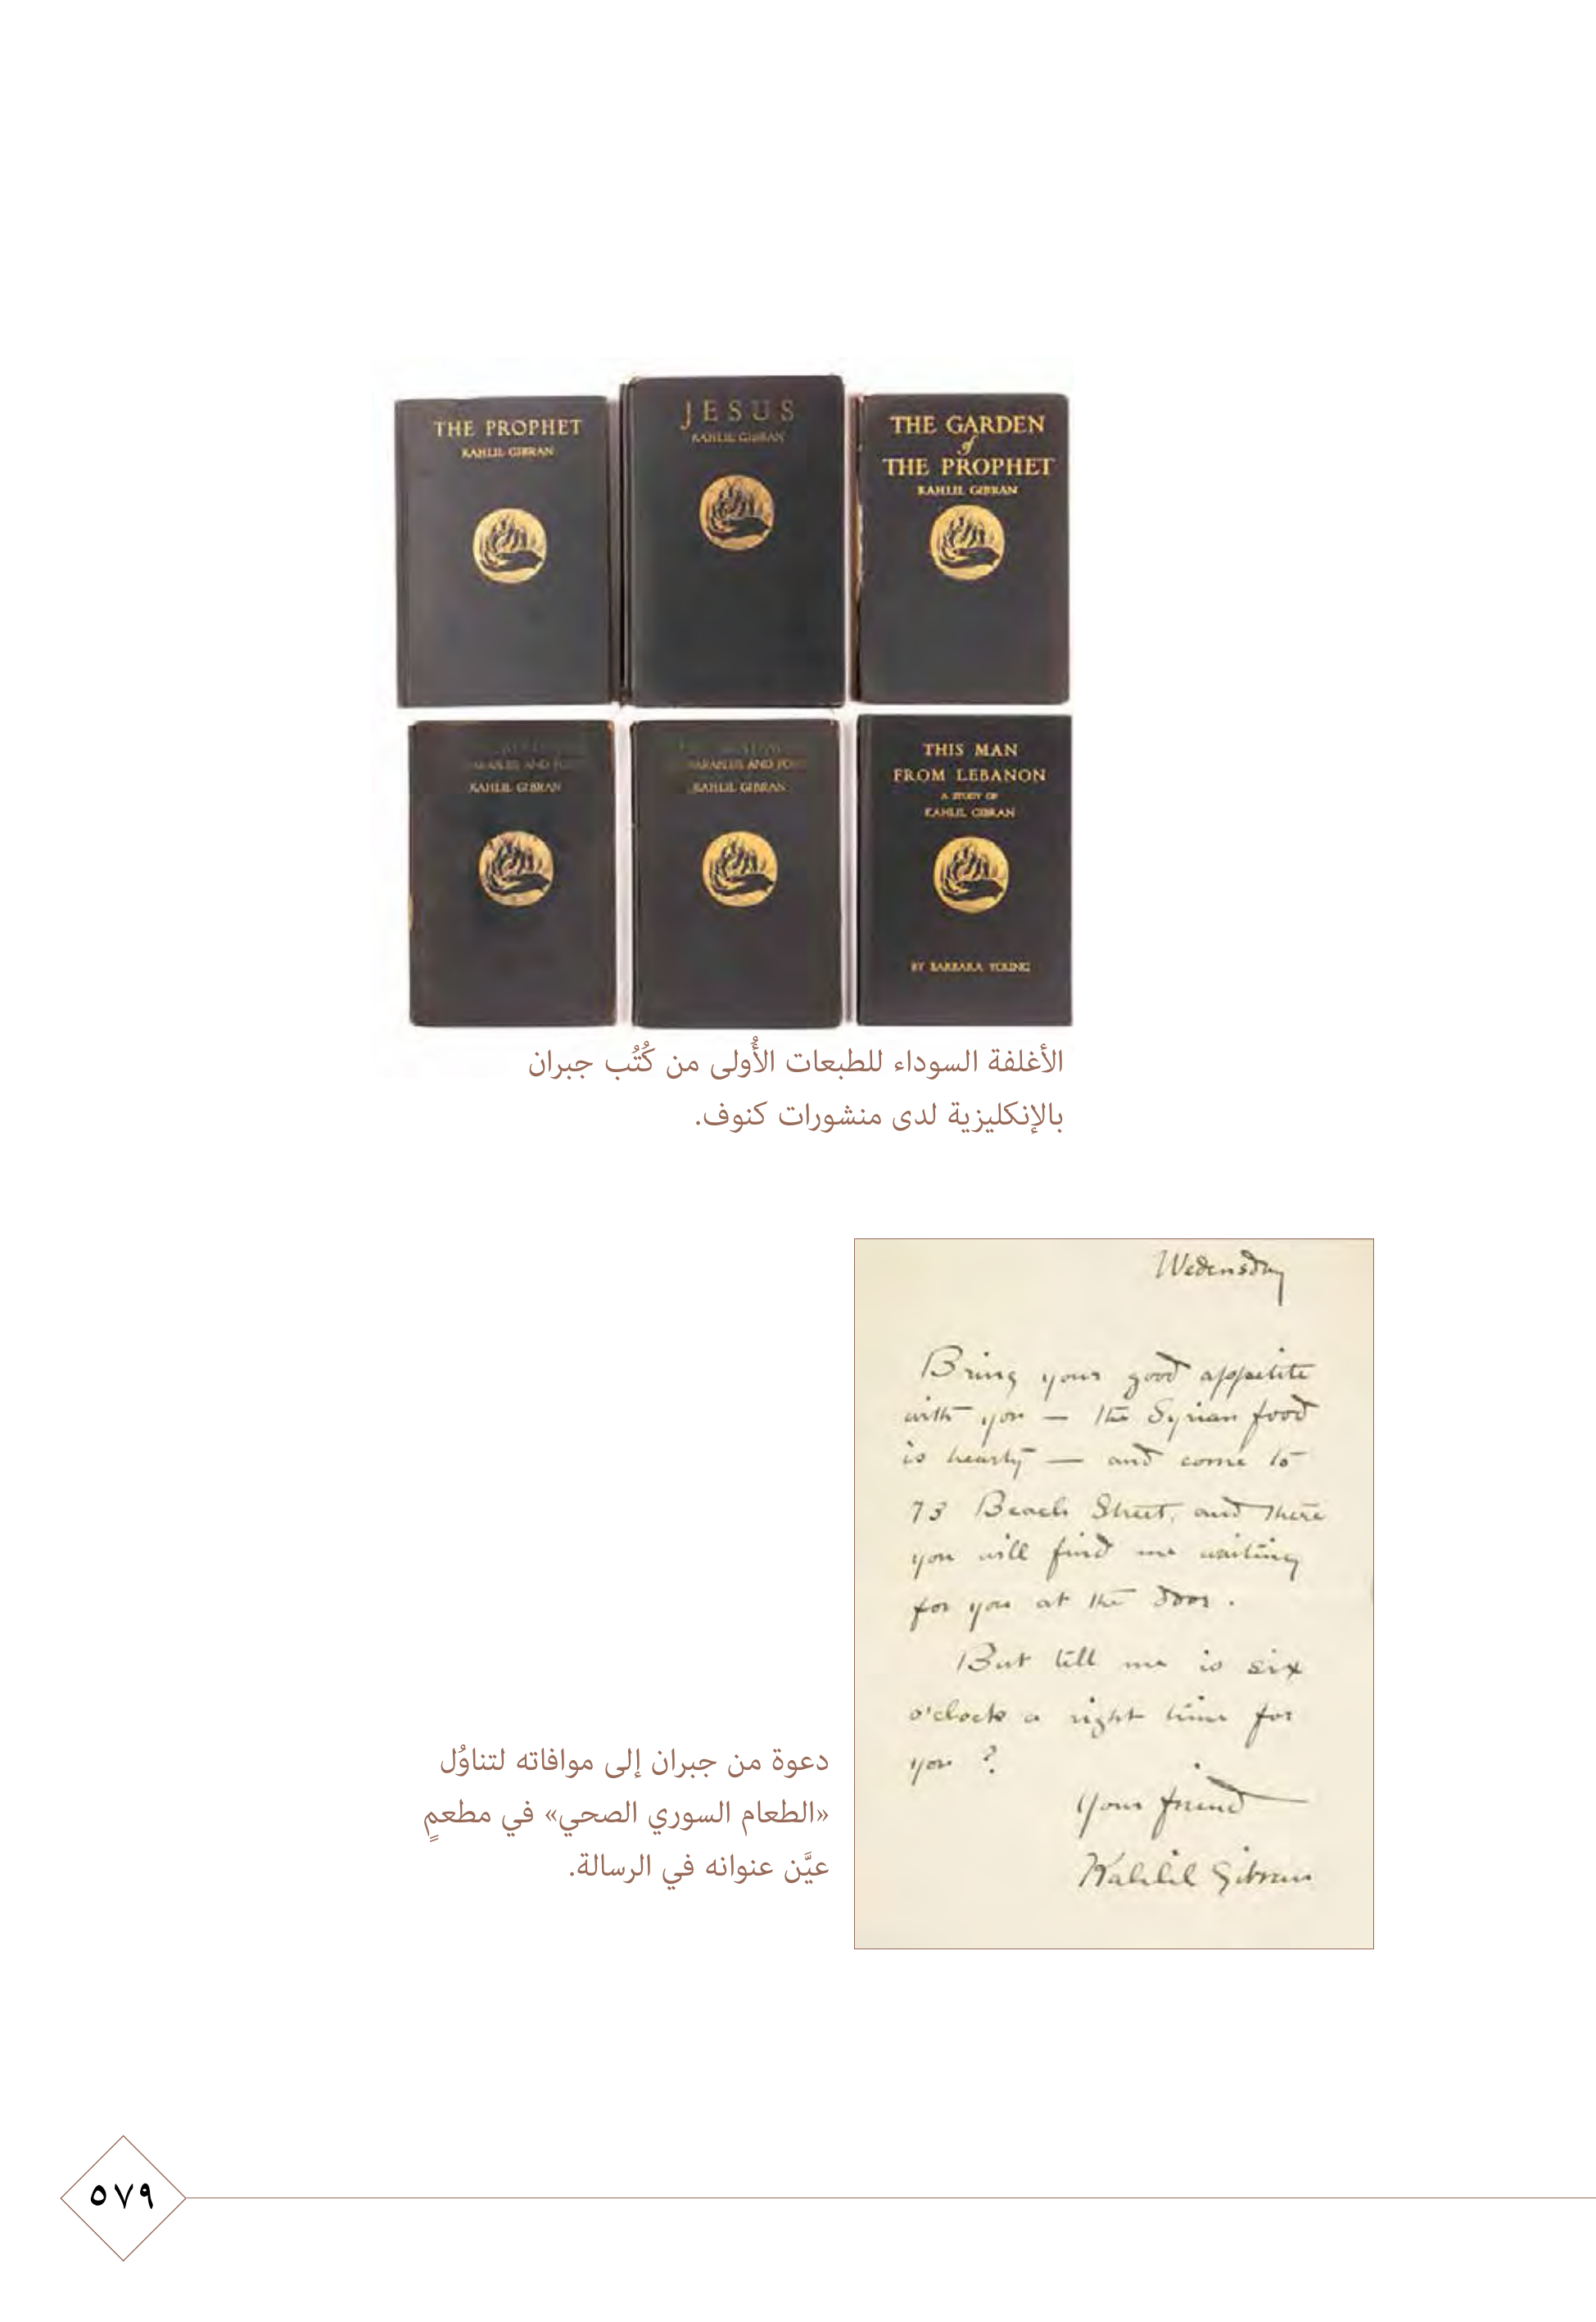 THE PROPHET
KAHLIL GIBRAN
JESUS
KAHLIL GIBRAN
THE GARDEN
of
THE PROPHET
KAHLIL GIBRAN
AND
KAHLIL GIBRAN
PARABLES AND
KAHLIL GIBRAN
THIS MAN
FROM LEBANON
A STUDY OF
KAHLIL GIBRAN
BY BARBARA YOUNG
الأغلفة السوداء للطبعات الأُولى من كُتُب جبران
بالإنكليزية لدى منشورات كنوف.
Wedensday
Bring your good appetite
with you — the Syrian food
is hearty — and come to
73 Beach Street, and there
you will find me waiting
for you at the door.
But till me is six
o'clock a right time for
you ?
Your friend
Kahlil Gibran
دعوة من جبران إلى موافاته لتناوُل
«الطعام السوري الصحي» في مطعمٍ
عيَّن عنوانه في الرسالة.
٥٧٩